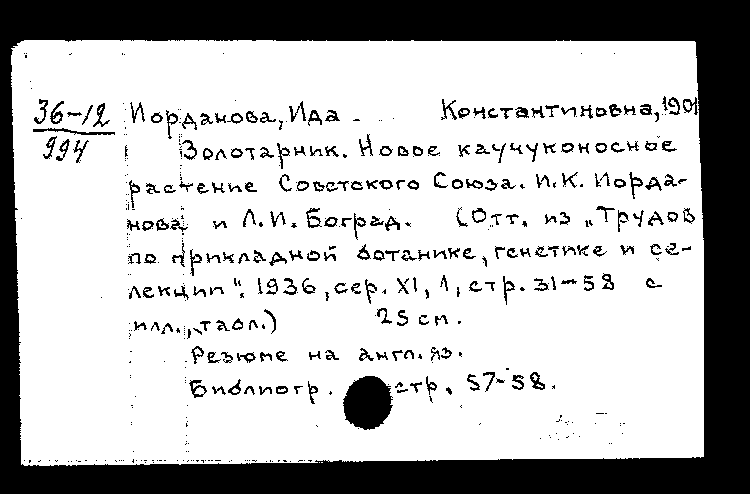 36-12 Иорданова, Ида Константиновна, 1901
994 Золотарник. Новое каучуконосное
растение Советского Союза. И.К. Иорда-
нова и Л.И. Боград. (Отт. из „Трудов
по прикладной ботанике, генетике и се-
лекции". 1936, сер. XI, 1, стр. 31-58 с
илл., табл.) 25 см.
Резюме на англ. яз.
Библиогр. стр. 57-58.